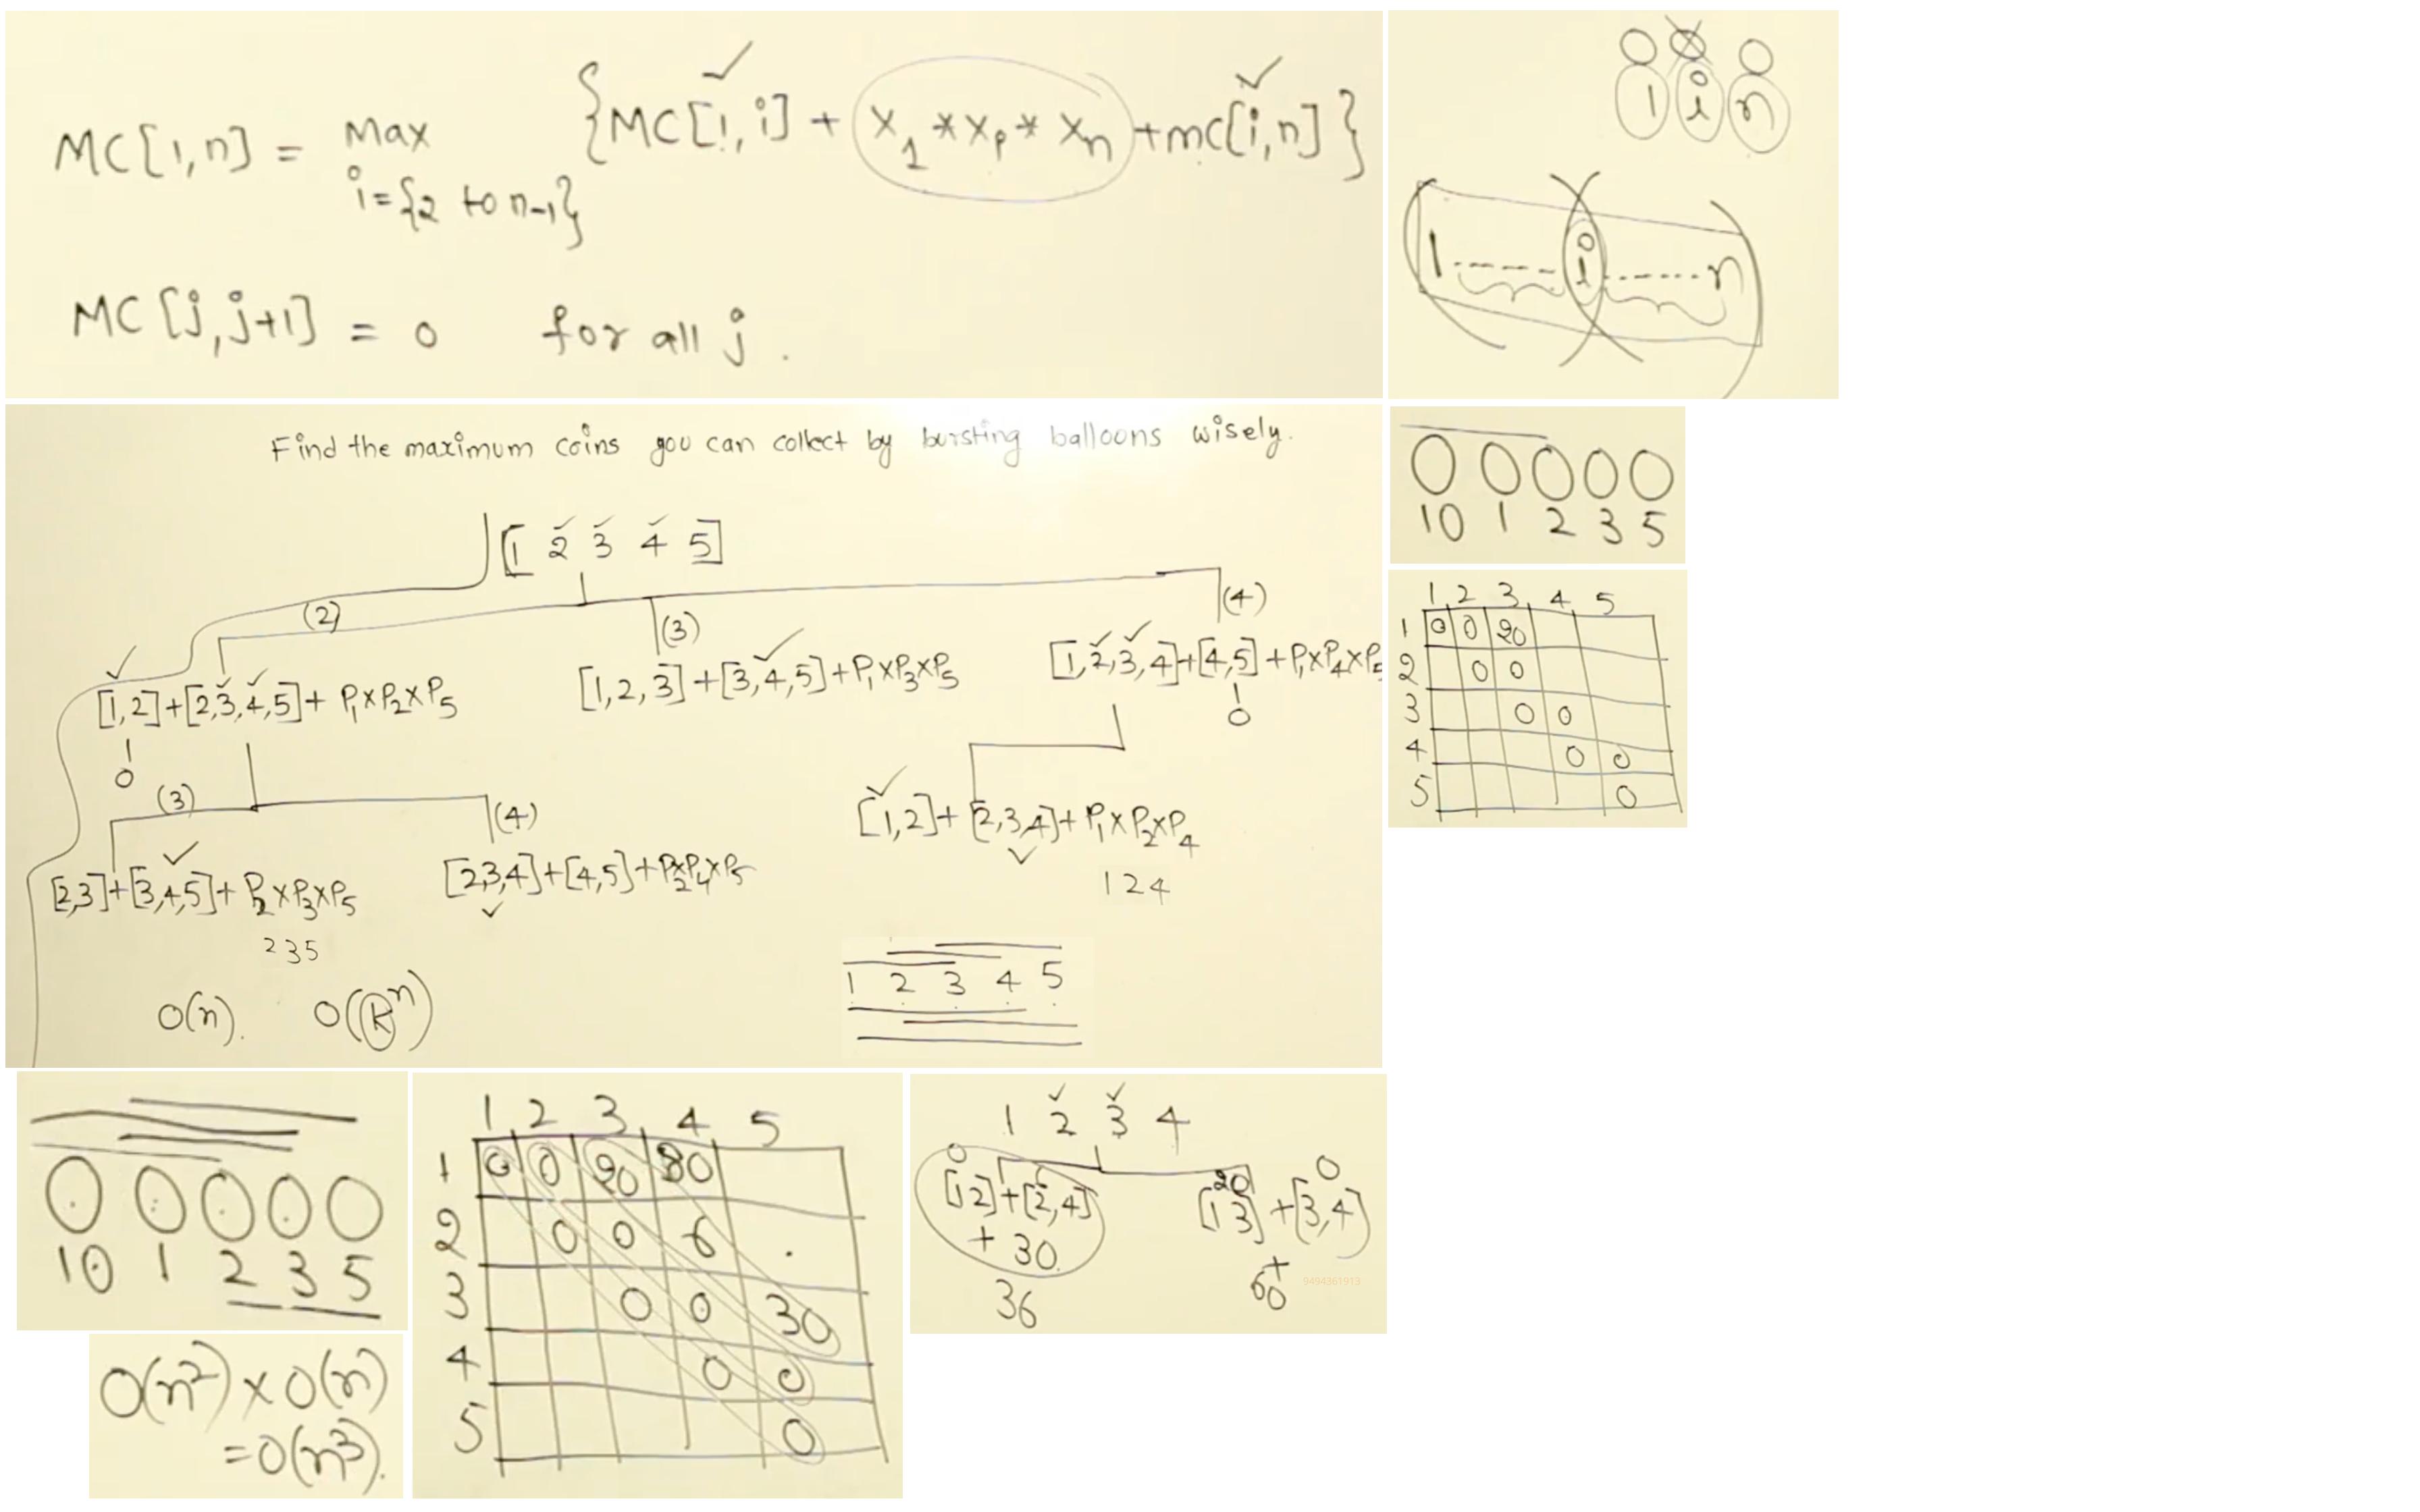 MC[1,n] = Max {MC[1,i] + x₁ * xₚ * xₙ + mc[i,n]}
i={2 to n-1}
MC[j,j+1] = 0 for all j.
1 i n
1 ------ i ------ n
Find the maximum coins you can collect by bursting balloons wisely.
[1 2 3 4 5]
(2) (3) (4)
[1,2]+[2,3,4,5]+ P₁xP₂xP₅
0
[1,2,3]+[3,4,5]+P₁xP₃xP₅
[1,2,3,4]+[4,5]+P₁xP₄xP₅
0
(3) (4)
[2,3]+[3,4,5]+ P₂xP₃xP₅
235
[2,3,4]+[4,5]+P₂xP₄xP₅
[1,2]+[2,3,4]+P₁xP₂xP₄
124
O(n). O(kⁿ)
1 2 3 4 5
10 1 2 3 5
1 2 3 4 5
1 0 0 20
2 0 0
3 0 0
4 0 0
5 0
10 1 2 3 5
O(n²) x O(n)
=O(n³).
1 2 3 4 5
1 0 0 20 80
2 0 0 6 .
3 0 0 30
4 0 0
5 0
1 2 3 4
0 20 0
[1 2]+[2,4] [1 3]+[3,4]
+ 30 +
36 60
9494361913